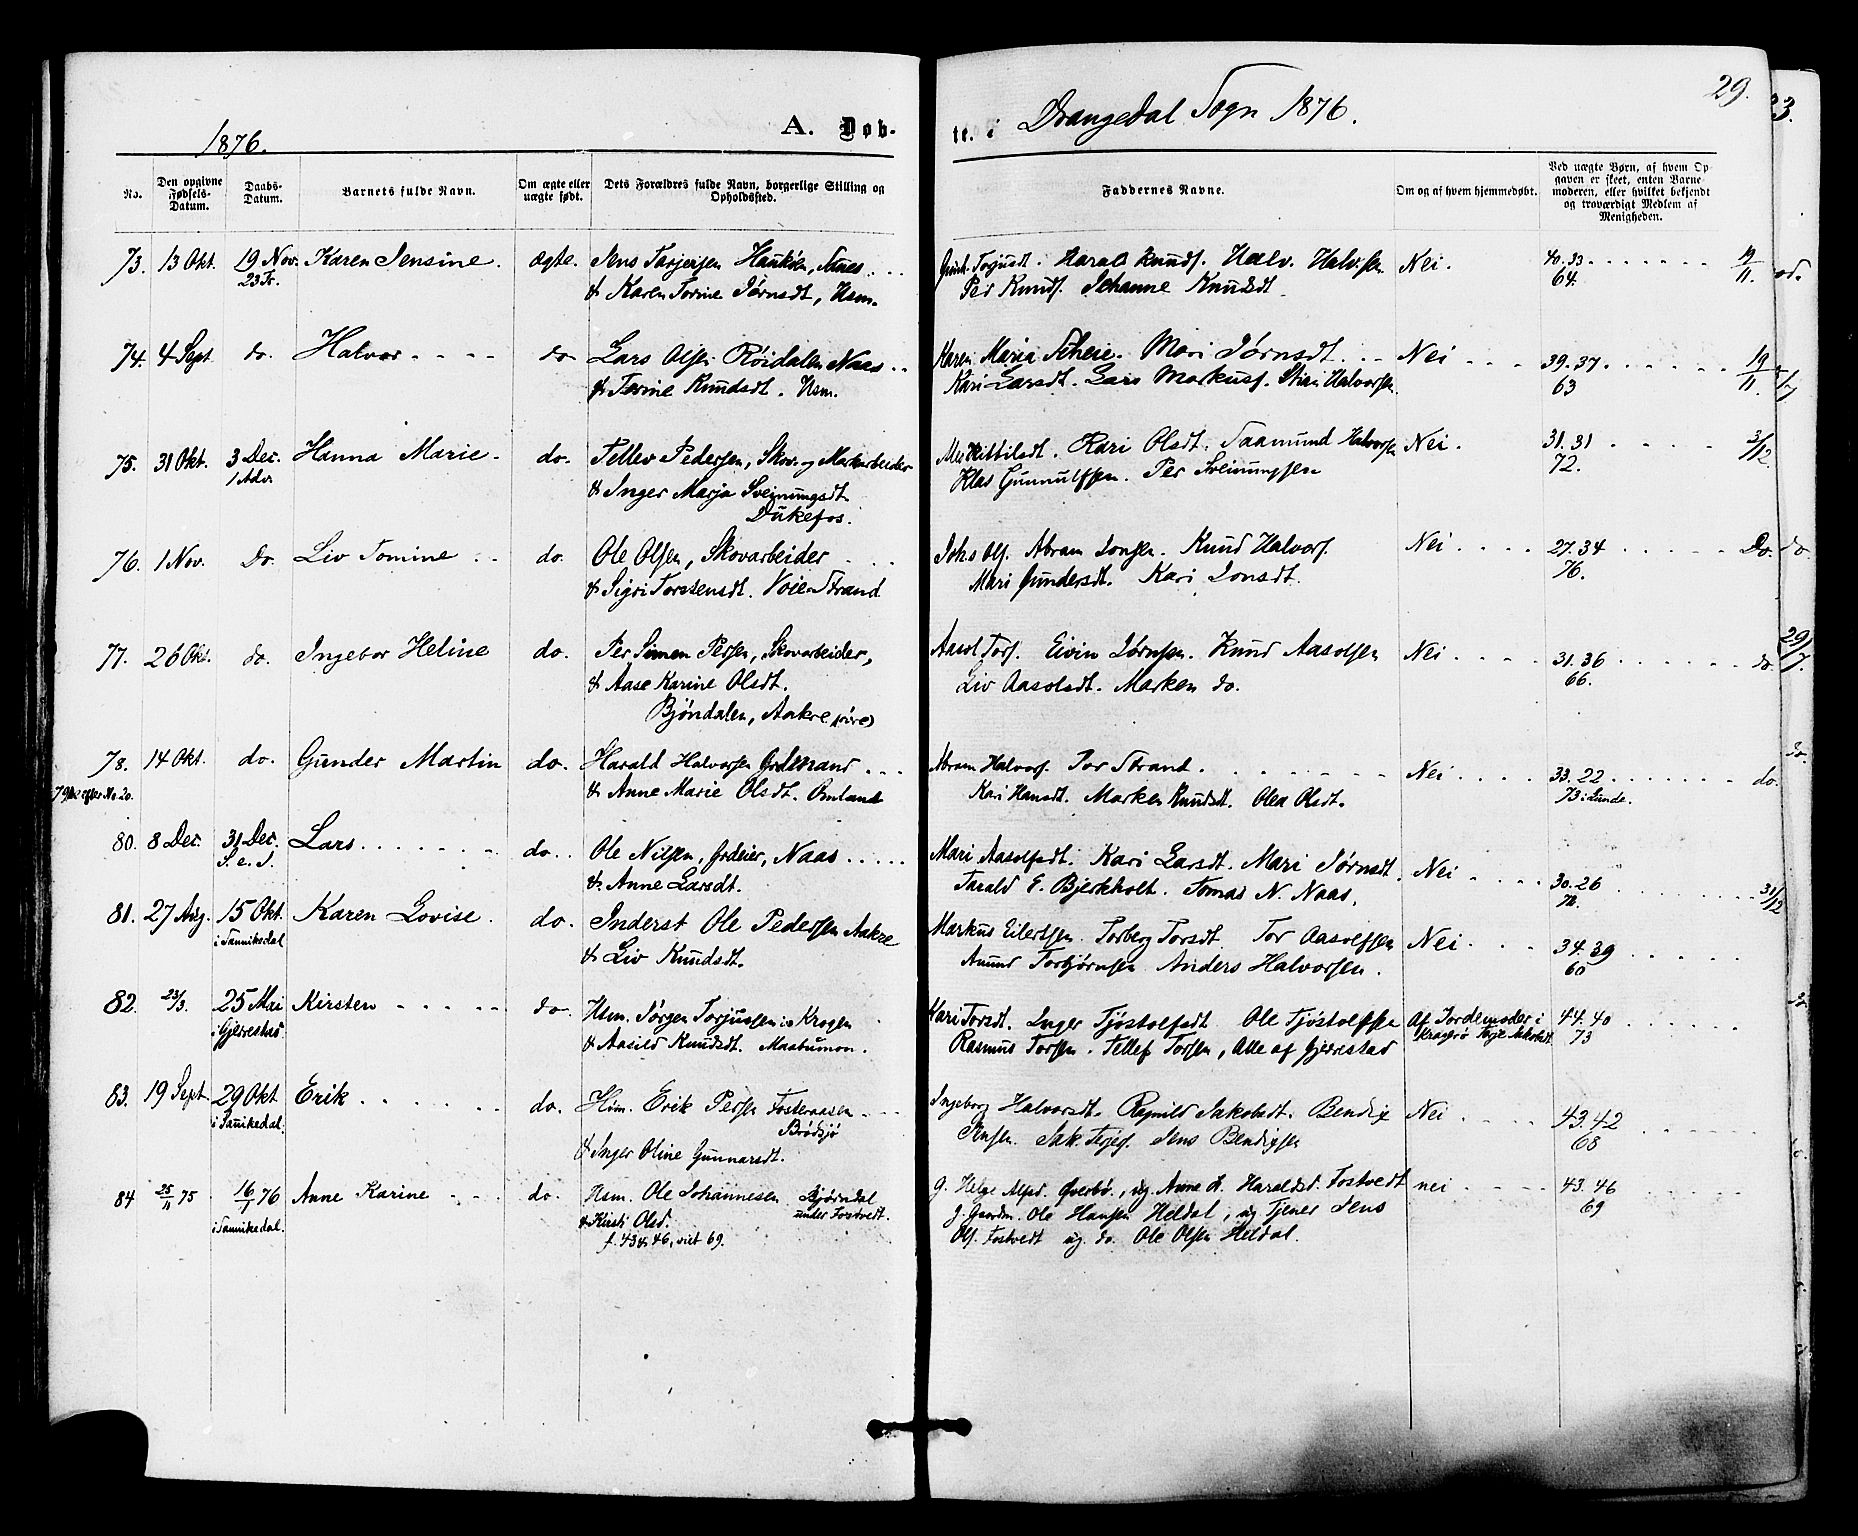 1876.
A. Døb-
te. i Drangedal Sogn 1876.
29.
No.
Den opgivne Fødsels-Datum.
Daabs-Datum.
Barnets fulde Navn.
Om ægte eller uægte født.
Dets Forældres fulde Navn, borgerlige Stilling og Opholdssted.
Faddernes Navne.
Om og af hvem hjemmedøbt.
Ved uægte Børn, af hvem Opgaven er skeet, enten Barnemoderen, eller hvilket bekjendt og troværdigt Medlem af Menigheden.
73. 13 Okt. 19 Nov. Karen Jensine. ægte. Jens Tarjeisen
23 Tr. & Karen Tomine Jørnsdt, Hsm.
Harald Knuds. Halv. Halvsen Nei. 40.33 19/11.
Per Knuds. Johanne Knudsdt 64.
74. 4 Sept do. Halvor do Lars Olsen Røidalen Naas
& Tomine Knudsdt. Hsm.
Maren Maria Scheie. Mari Jørnsdt. Nei 39.37 19/11.
Kari Larsdt. Lars Markuss. Stian Halvorsen 63
75. 31 Okt. 3 Dec. Hanna Marie. do. Tellev Pedersen, Skov- og Markarbeider
1 Adv. & Inger Marja Sveinungsdt
Dukefos.
Kittilsdt. Kari Olsdt. Saamund Halvorsen Nei. 31.31 3/12.
Klas Gunnulfsen. Per Sveinungsen 72.
76. 1 Nov. Do. Liv Tomine do. Ole Olsen, Skovarbeider
& Sigri Torstensdt. Voie-Strand
Johs Ols. Abram Jonsen. Knud Halvors. Nei 27.34 Do.
Mari Gundersdt. Kari Jonsdt. 76.
77. 26 Okt. do. Ingebor Heline do. Per Simen Persen, Skovarbeider,
& Aase Karine Olsdt.
Bjöndalen, Aakre
Aasol Tors. Eivin Jörnsen. Knud Aasolsen Nei 31.36 do.
Liv Aasolsdt. Marken do. 66.
78. 14 Okt. do. Gunder Martin do. Harald Halvorsen Grdmand
& Anne Marie Olsdt. Omland
Abram Halvors. Tor Strand. Nei 33.22 do.
Kari Hansdt. Marken Knudsdt. Olea Olsdt. 73 i Lunde.
79 efter No 20.
80. 8 Dec. 31 Dec. Lars do. Ole Nilsen, Grdeier, Naas
S. e. J. & Anne Larsdt.
Mari Aasolfsdt. Kari Larsdt. Mari Jørnsdt. Nei 30.26 31/12
Tarald E. Bjerkholt. Tomas N. Naas.
81. 27 Aug. 15 Okt. Karen Lovise. do. Inderst Ole Pedersen Aakre
i Sannikedal & Liv Knudsdt.
Markus Eilertsen. Torberg Torsdt. Tor Aasolfsen Nei 34.39
Amund Torbjørnsen Anders Halvorsen. 60
82. 23/3. 25 Mai Kirsten do. Hsm. Jørgen Torjussen i Krogen
i Gjerrestad & Aasild Knudsdt. Maabumon.
Kari Torsdt. Inger Tjøstolfsdt Ole Tjøstolfsen Af Jordemoder i 44.40
Rasmus Torsen. Tellef Torsen, Alle af Gjerrestad Kragerø 73
83. 19 Sept 29 Okt. Erik do. Hsm. Erik Persen Fosteraasen
i Sannikedal. Brødsjø
& Inger Oline Gunnarsdt.
Ingeborg Halvorsdt. Ragnild Jakobsdt. Bendix Nei 43.42
Jensen. Jak. Terjes. Jens Bendixsen 68
84 25/11 75 16/1 76 Anne Karine do. Hsm. Ole Johannesen Bjørndal
i Sannikedal. & Kirsti Olsd. under Fostvedt.
f. 43 & 46, viet 69.
g. Helge Alfsd. Øverbø., ug. Anne H. Haraldsd. Fostvedt nei 43.46
g. Gaardm. Ole Hansen Heldal, ug Tjener Jens 69
Ols. Fostvedt ug. do. Ole Olsen Heldal.